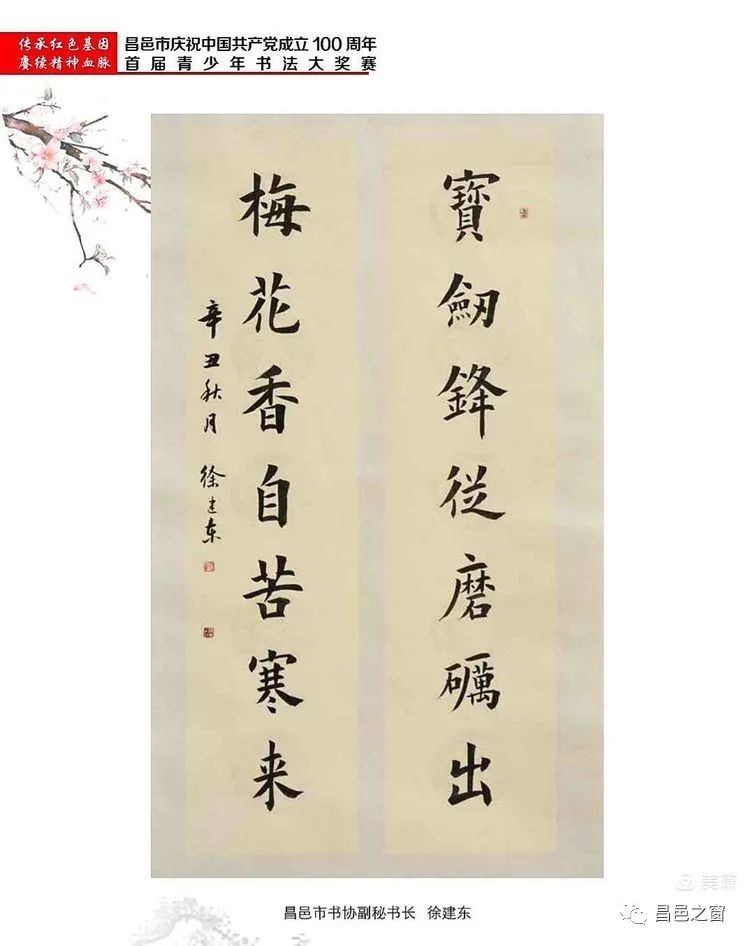 传承红色基因
赓续精神血脉
昌邑市庆祝中国共产党成立100周年
首届青少年书法大奖赛
寶劒鋒從磨礪出
梅花香自苦寒来
辛丑秋月 徐建东
昌邑市书协副秘书长 徐建东
美篇
昌邑之窗